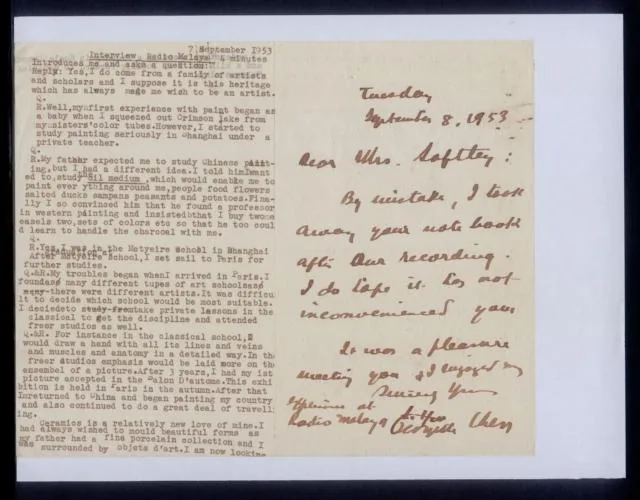 7 September 1953
Interview Radio Malaya 4 minutes
Introduces me and asks a question:
Reply: Yes,I do come from a family of artists
and scholars and I suppose it is this heritage
which has always made me wish to be an artist.
Q.
R.Well,myfirst experience with paint began as
a baby when I squeezed out Crimson lake from
my sisters'color tubes.However,I started to
study painting seriously in Shanghai under a
private teacher.
Q.
R.My father expected me to study Chinese paint-
ing,but I had a different idea.I told himIwant
ed to study the oil medium ,which would enable me to
paint ever ything around me,people food flowers
salted ducks sampans peasants and potatoes.Fina-
lly I so convinced him that he found a professor
in western painting and insistedbthat I buy twone
easels two,sets of colors etc so that he too coul
d learn to handle the charcoal with me.
Q.
R.Yes,I was in the Metyeire School in Shanghai
After Metyeire School,I set sail to Paris for
further studies.
Q.&R.My troubles began whenI arrived in Paris.I
foundas many different types of art schoolsas
many there were different artists.It was difficu
lt to decide which school would be most suitable.
I deciedeto study fromtake private lessons in the
classical to get the discipline and attended
freer studios as well.
Q.&R. For instance in the classical school,I
would draw a hand with all its lines and veins
and muscles and anatomy in a detailed way.In the
freer studios emphasis would be laid more on the
ensembel of a picture.After 3 years,I had my 1st
picture accepted in the Salon D'automne.This exhi
bition is held in Paris in the autumn.After that
Inreturned to China and began painting my country
and also continued to do a great deal of travell
ing.
Ceramics is a relatively new love of mine.I
had always wished to mould beautiful forms as
my father had a fine porcelain collection and I
was surrounded by objets d'art.I am now lookin-
Tuesday
September 8, 1953
Dear Mrs. Softley :
By mistake, I took
away your note book
after our recording.
I do hope it has not
inconvenienced you
It was a pleasure
meeting you & I enjoyed my
Sincerely Yours
experience at
Radio Malaya
Georgette Chen